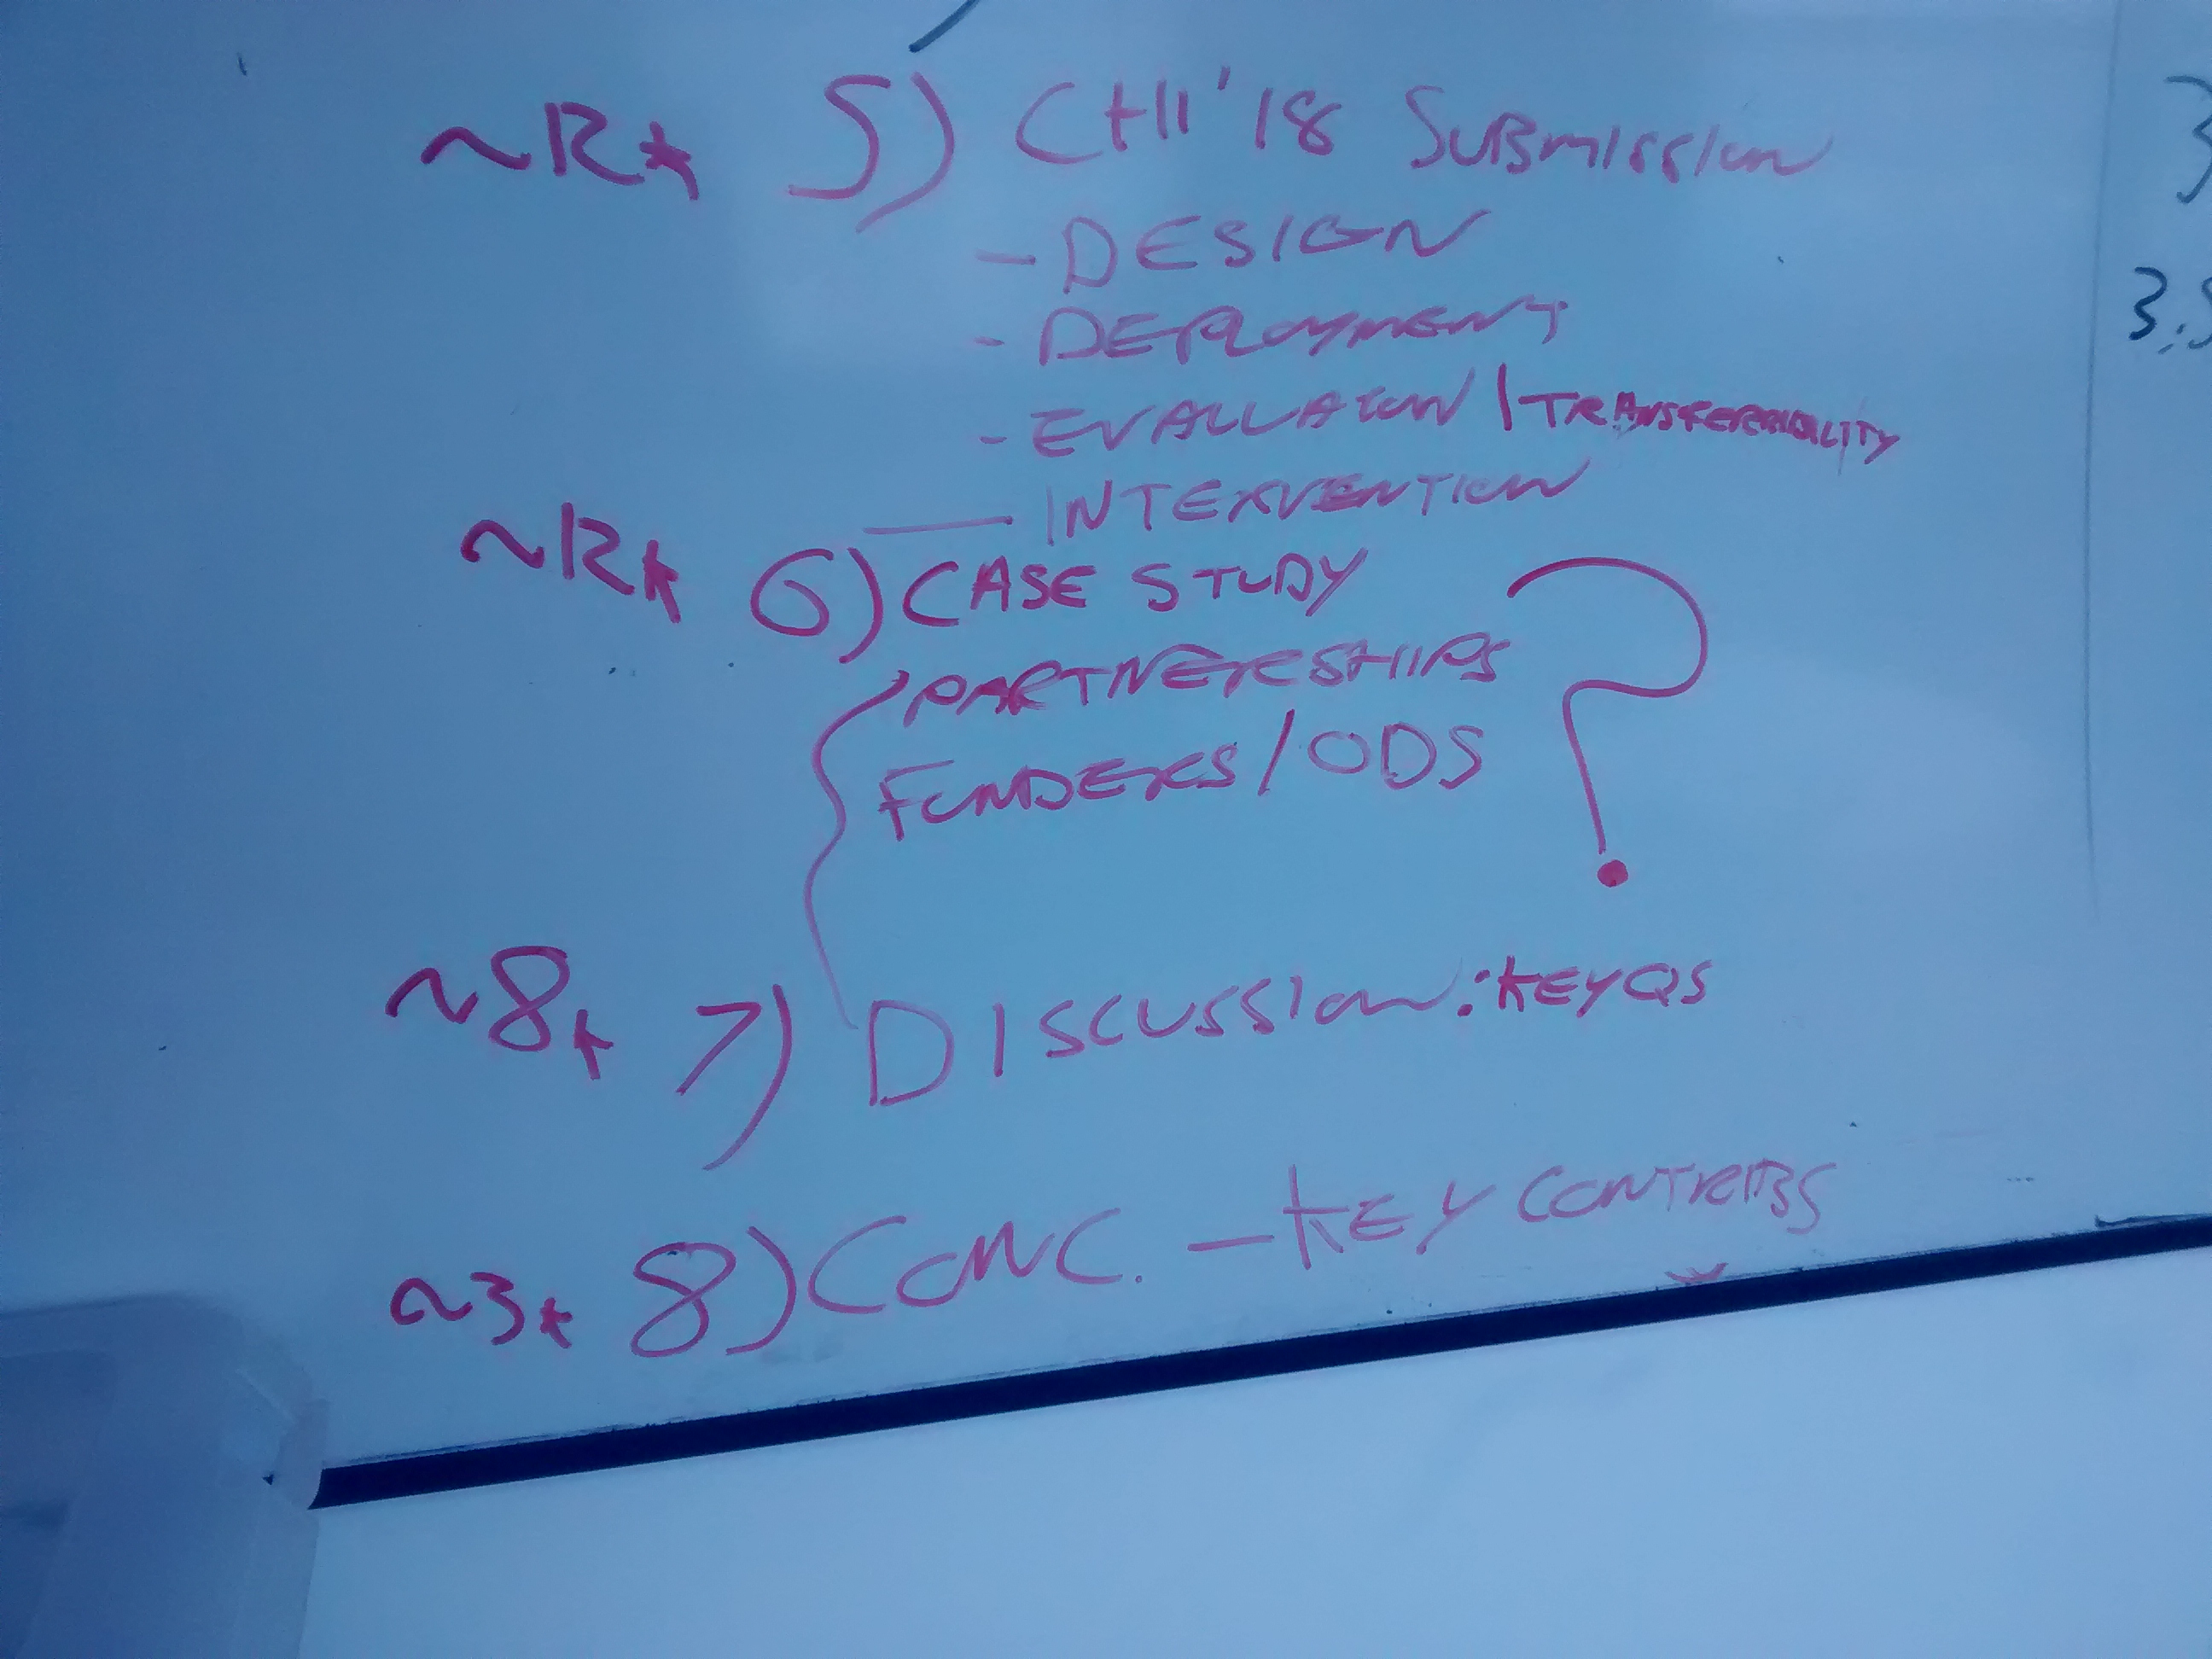 ~12k 5) CHI '18 SUBMISSION
- DESIGN
- DEPLOYMENT
- EVALUATION / TRANSFERABILITY
— INTERVENTION
~12k 6) CASE STUDY
PARTNERSHIPS
FUNDERS / ODS
?
~8k 7) DISCUSSION: KEY QS
~3k 8) CONC. - KEY CONTRIBS
3